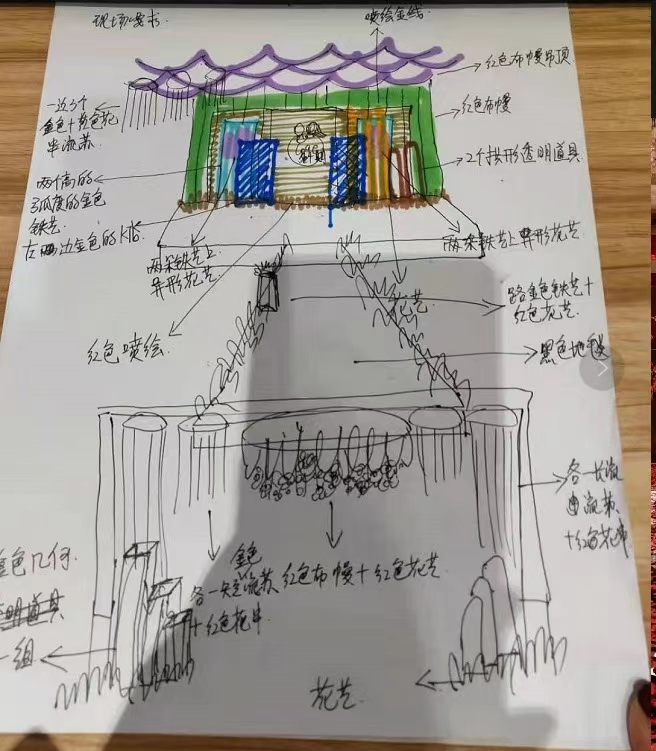 现场要求
喷绘金线
红色布幔吊顶
一边3个
金色+红色花
串流苏
红色布幔
2个拱形透明道具
两个高的
弧度的金色
铁艺
左 边金色的KT
两朵铁艺上
异形花艺
两朵铁艺上异形花艺
花艺
路金色铁艺+
红色花艺
红色喷绘
黑色地毯
各一长流
苏
+红色花串
金色几何
透明道具
一组
金色
各一 流苏
+红色花串
红色布幔+红色花艺
花艺